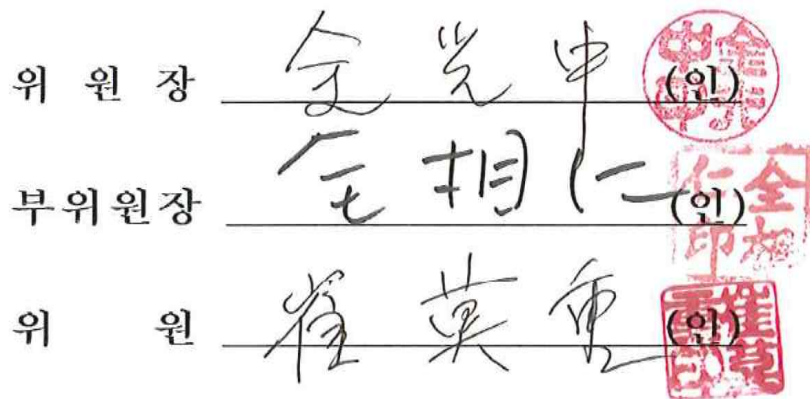 위 원 장 金光中 (인)
부위원장 全相仁 (인)
위 원 崔莫重 (인)